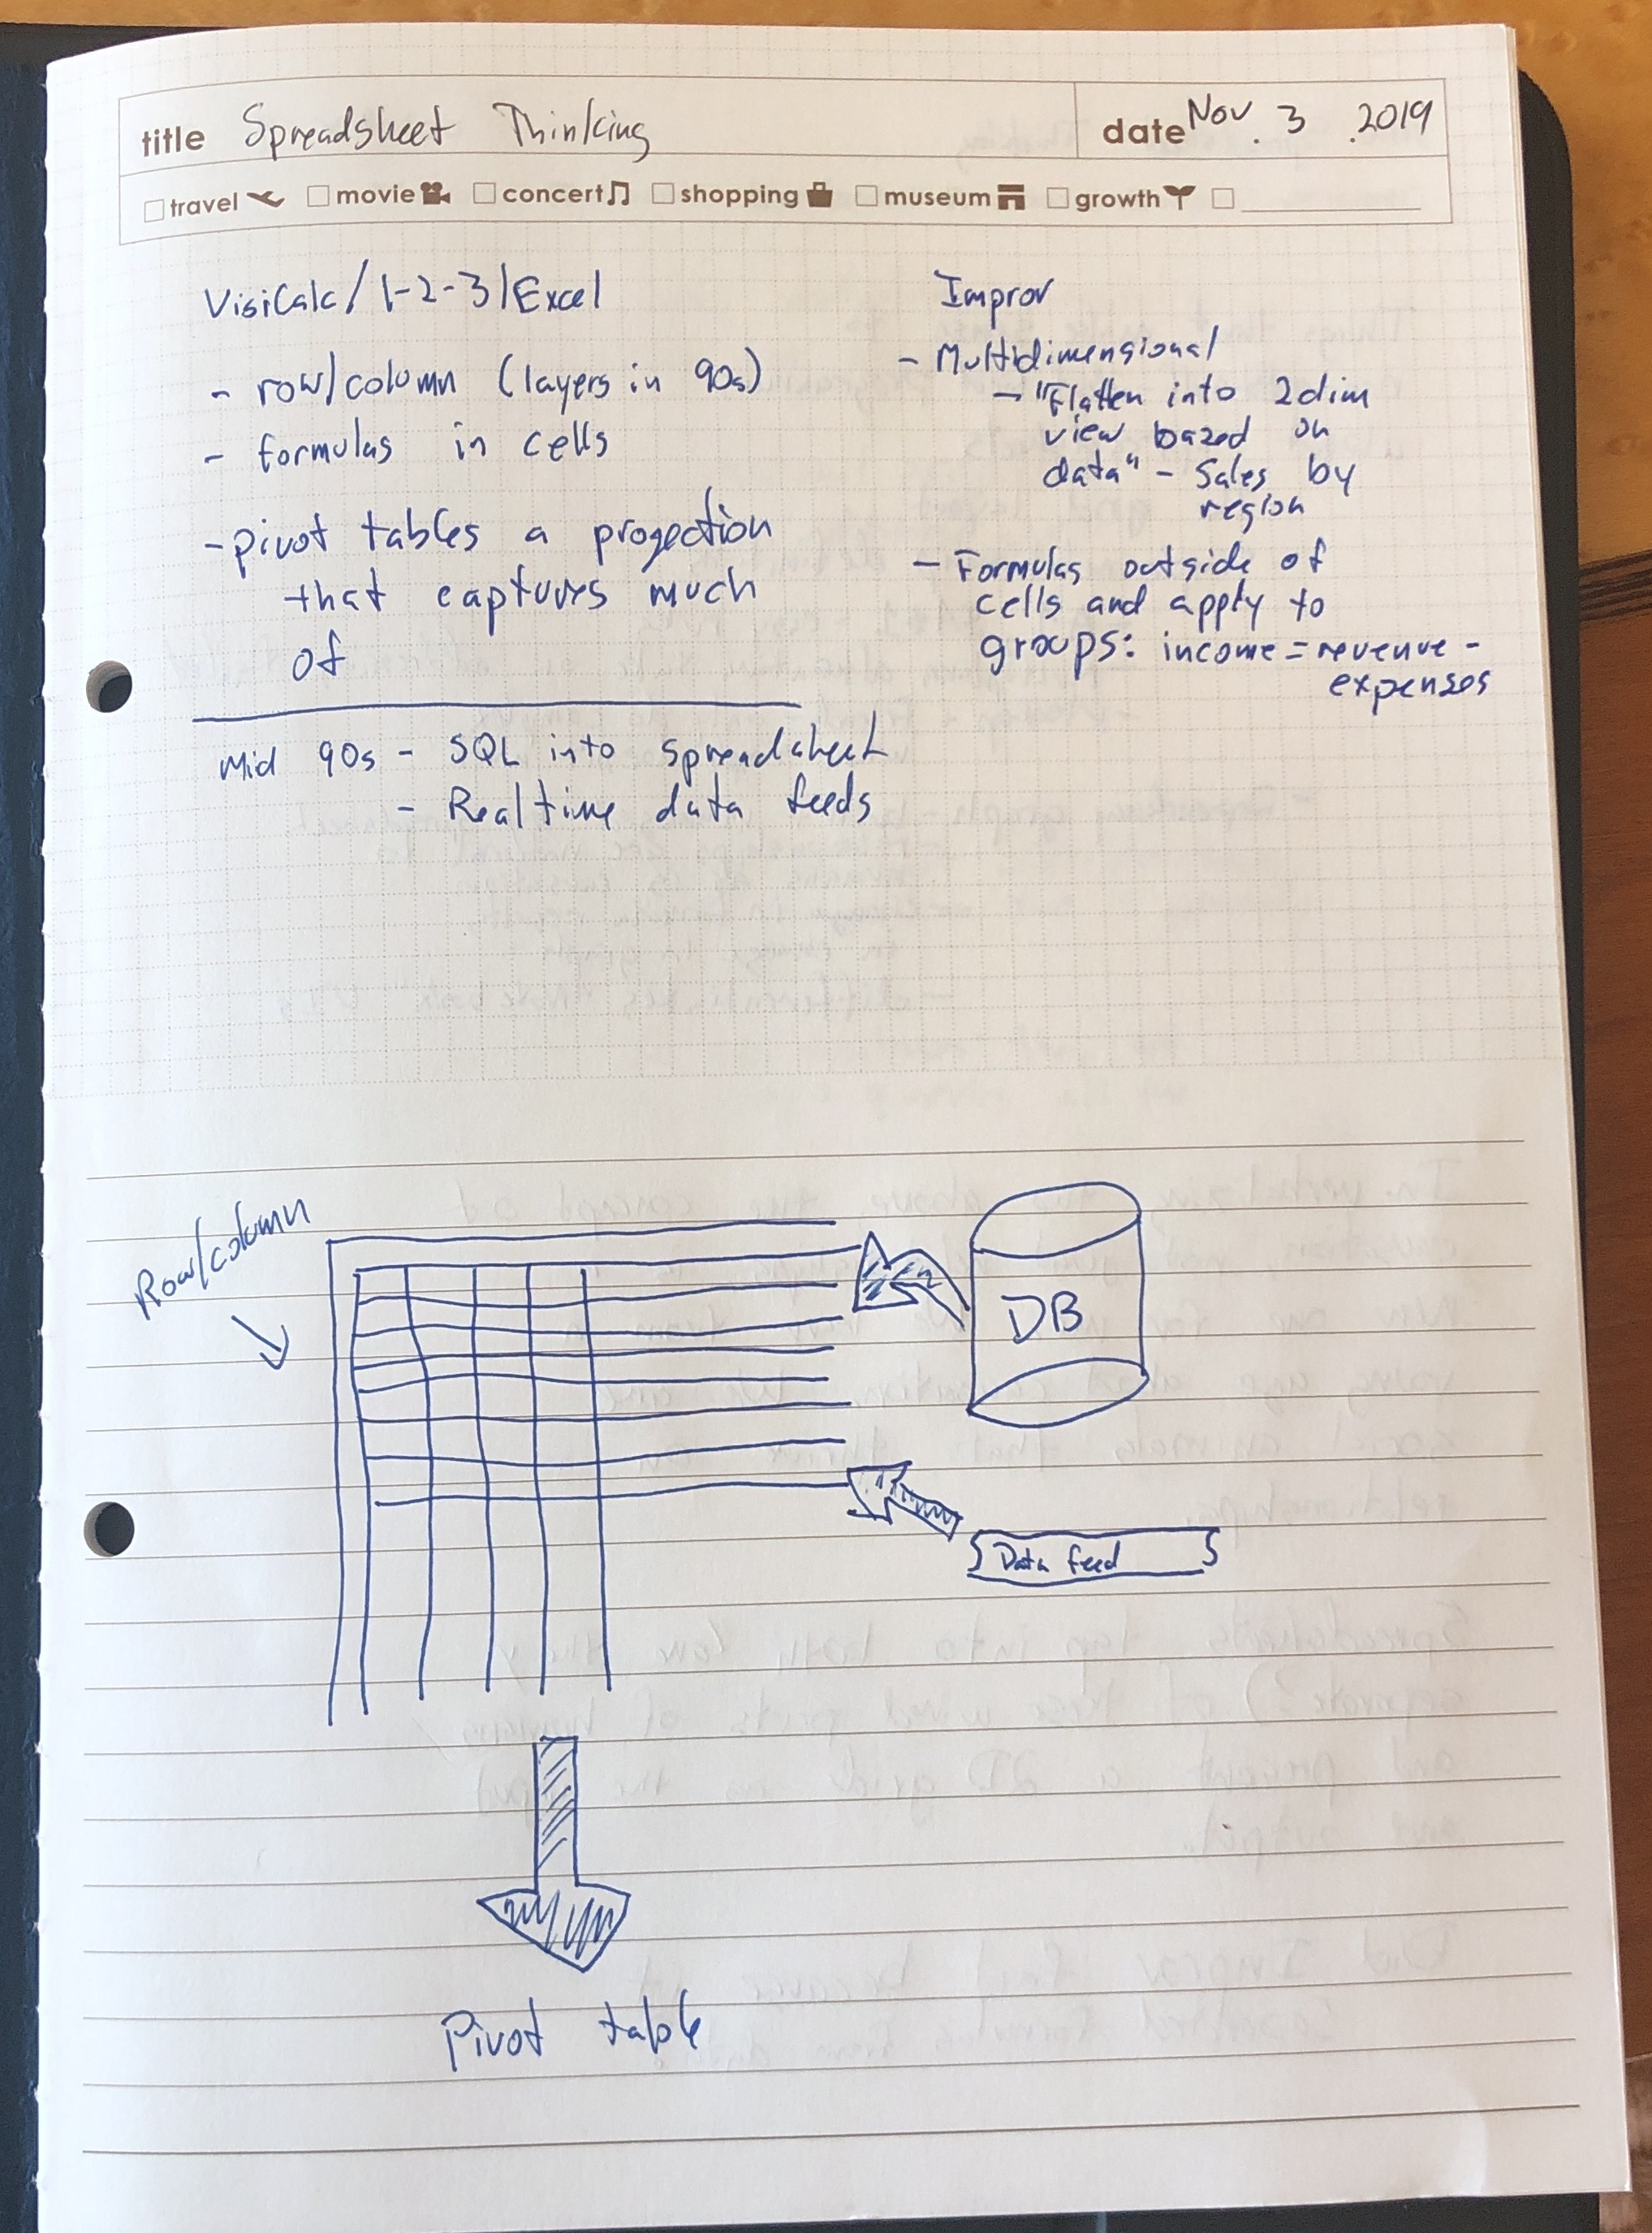 title Spreadsheet Thinking
date Nov. 3 .2019
travel movie concert shopping museum growth
VisiCalc/1-2-3/Excel
- row/column (layers in 90s)
- formulas in cells
- pivot tables a progection
that captures much
of
Mid 90s - SQL into spreadsheet
- Realtime data feeds
Improv
- Multidimensional
- "Flatten into 2dim
view bazed on
data" - Sales by
region
- Formulas outside of
cells and apply to
groups: income = revenue -
expenses
Row/column
DB
Data feed
Pivot table